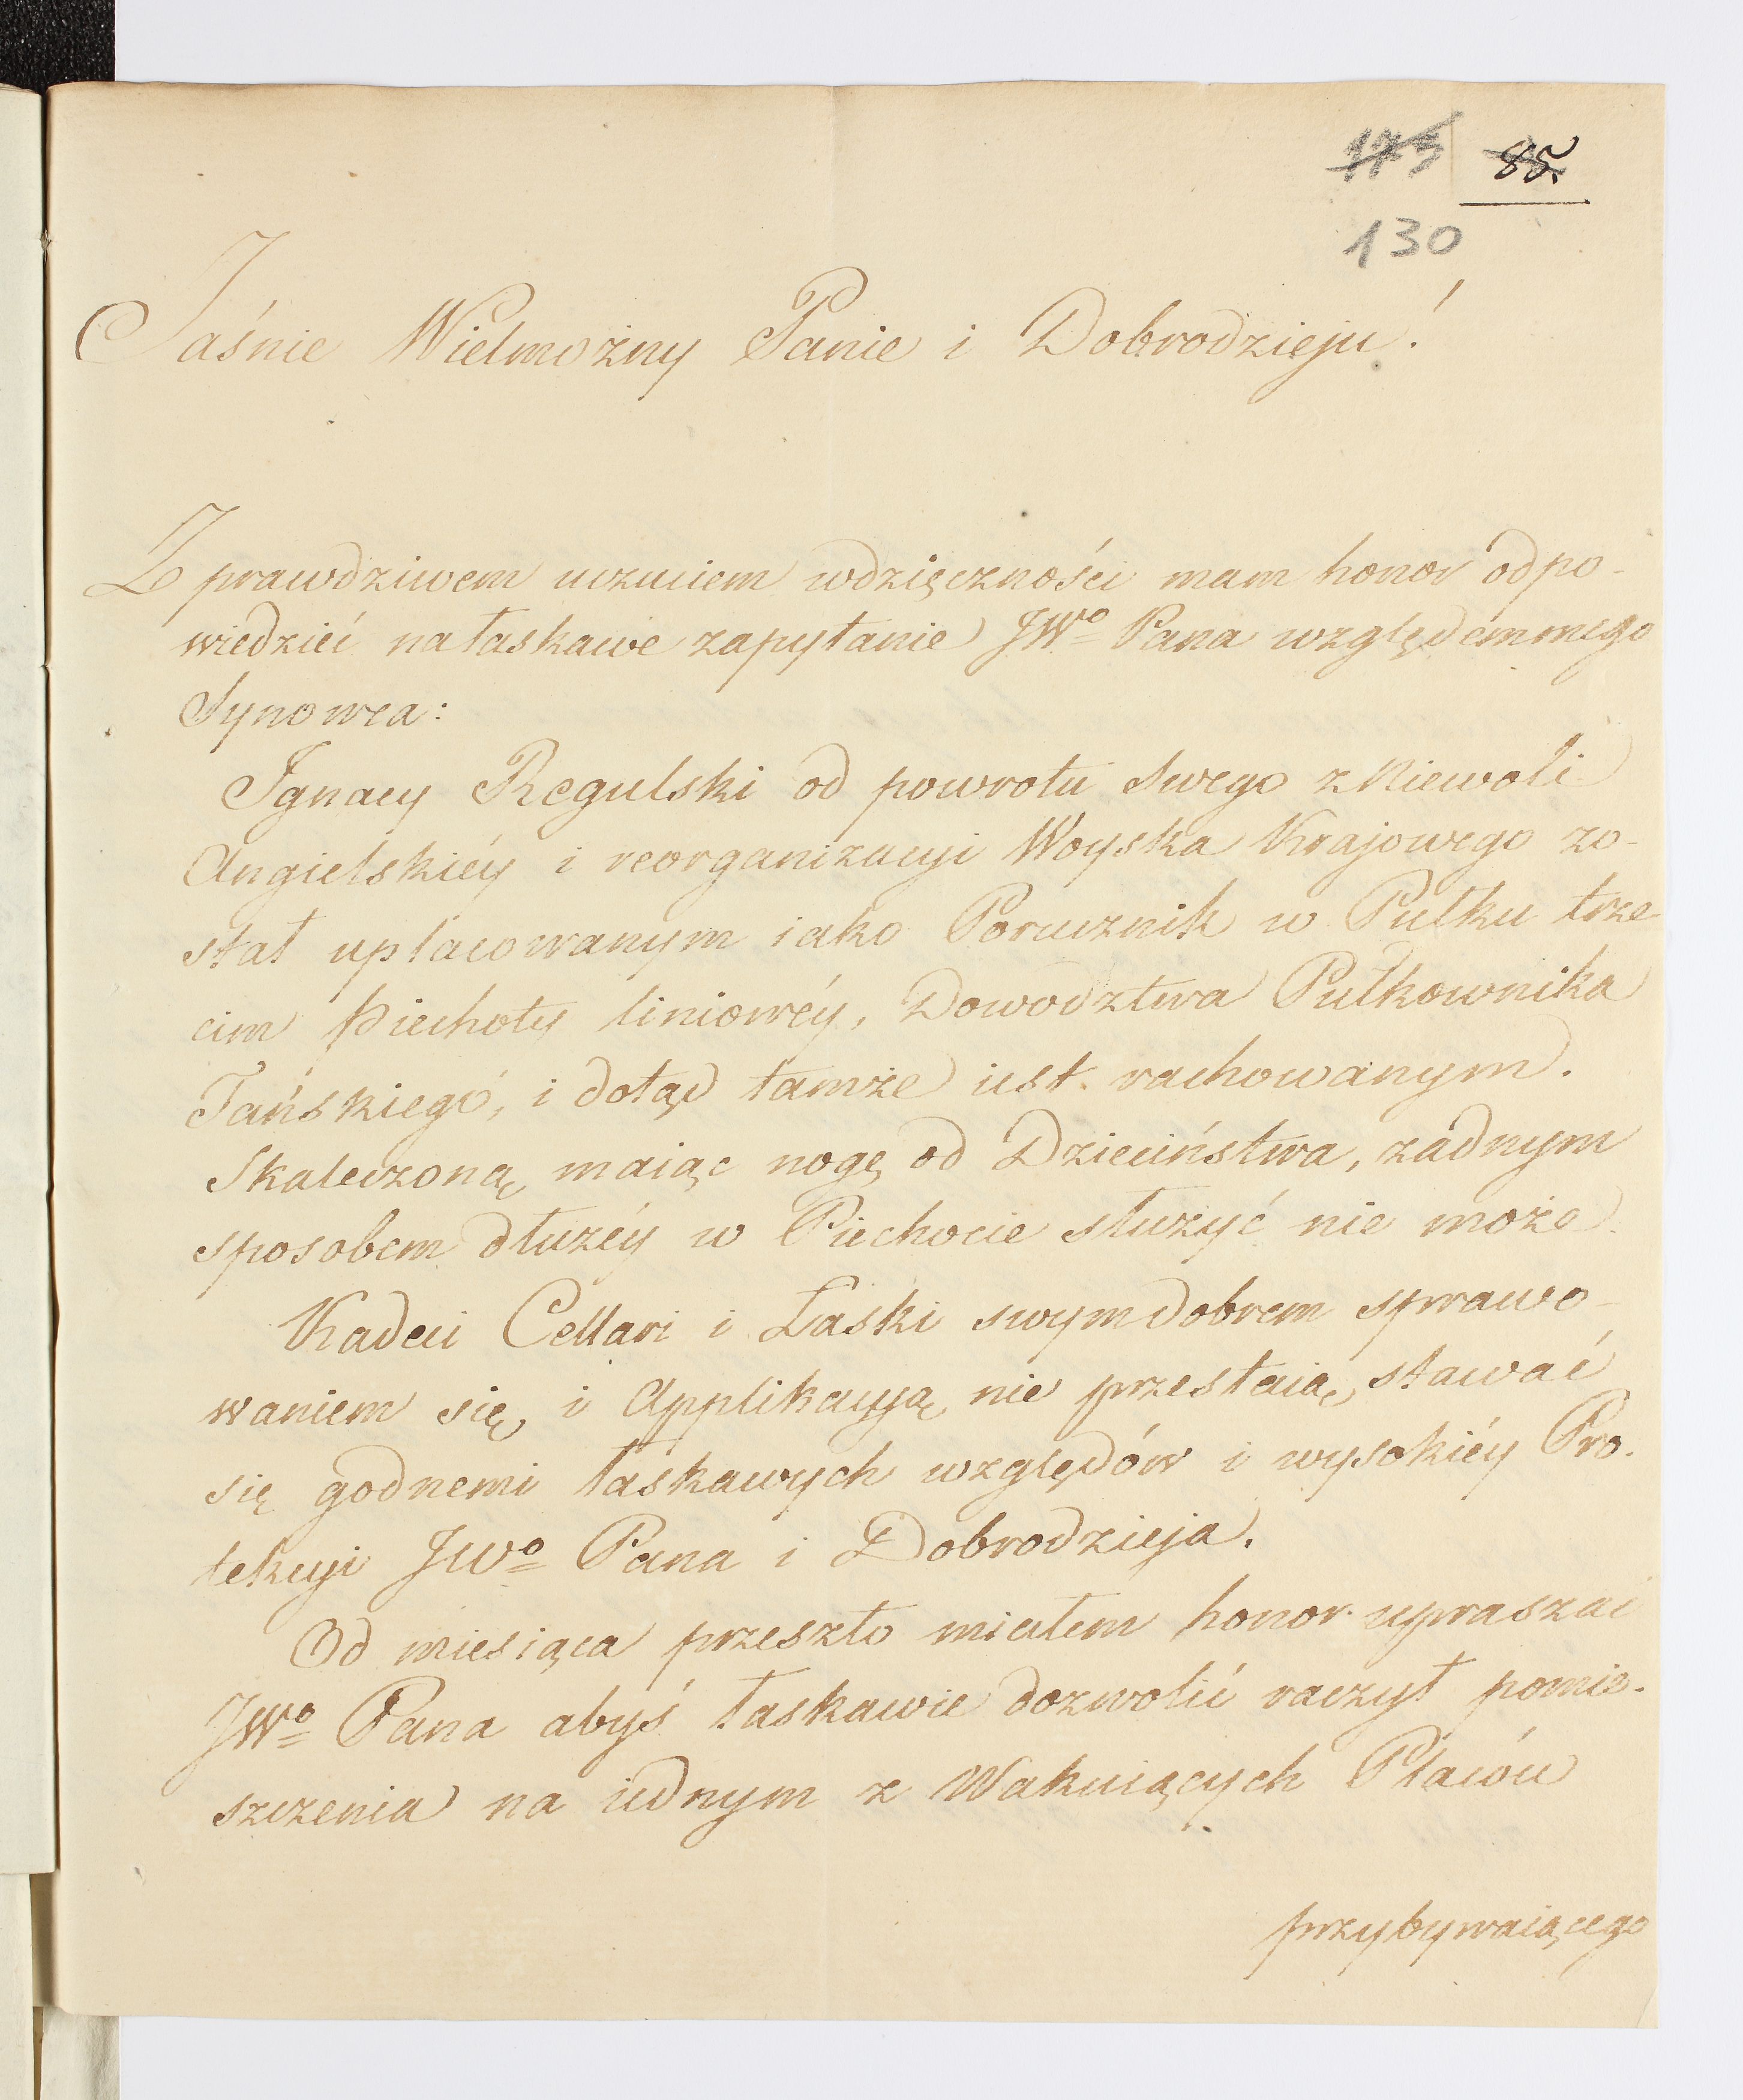 173 85.
130
Jaśnie Wielmożny Panie i Dobrodzieju!
Z prawdziwem uczuciem wdzięczności mam honor odpo-
wiedzieć na łaskawe zapytanie JWo Pana względem mego
Synowca:
Ignacy Regulski od powrotu swego z Niewoli
Angielskiéy i reorganizacyi Woyska Krajowego zo-
stał uplacowanym iako Porucznik w Pułku trze
cim Piechoty liniowéy, Dowodztwa Pułkownika
Tańskiego, i dotąd tamże iest rachowanym.
Skaleczoną maiąc nogę od Dzieciństwa, żadnym
sposobem dłużéy w Piechocie służyć nie może
Kadeci Cellari i Łaski swym dobrem sprawo-
waniem się, i Applikacyią nie przestaią stawać
się godnemi łaskawych względów i wysokiéy Pro-
tekcyi JWo Pana i Dobrodzieja.
Od miesiąca przeszło miałem honor upraszać
JWo Pana abyś łaskawie dozwolić raczył pomie-
szczenia na iednym z Wakuiących Placów
przybywaiącego